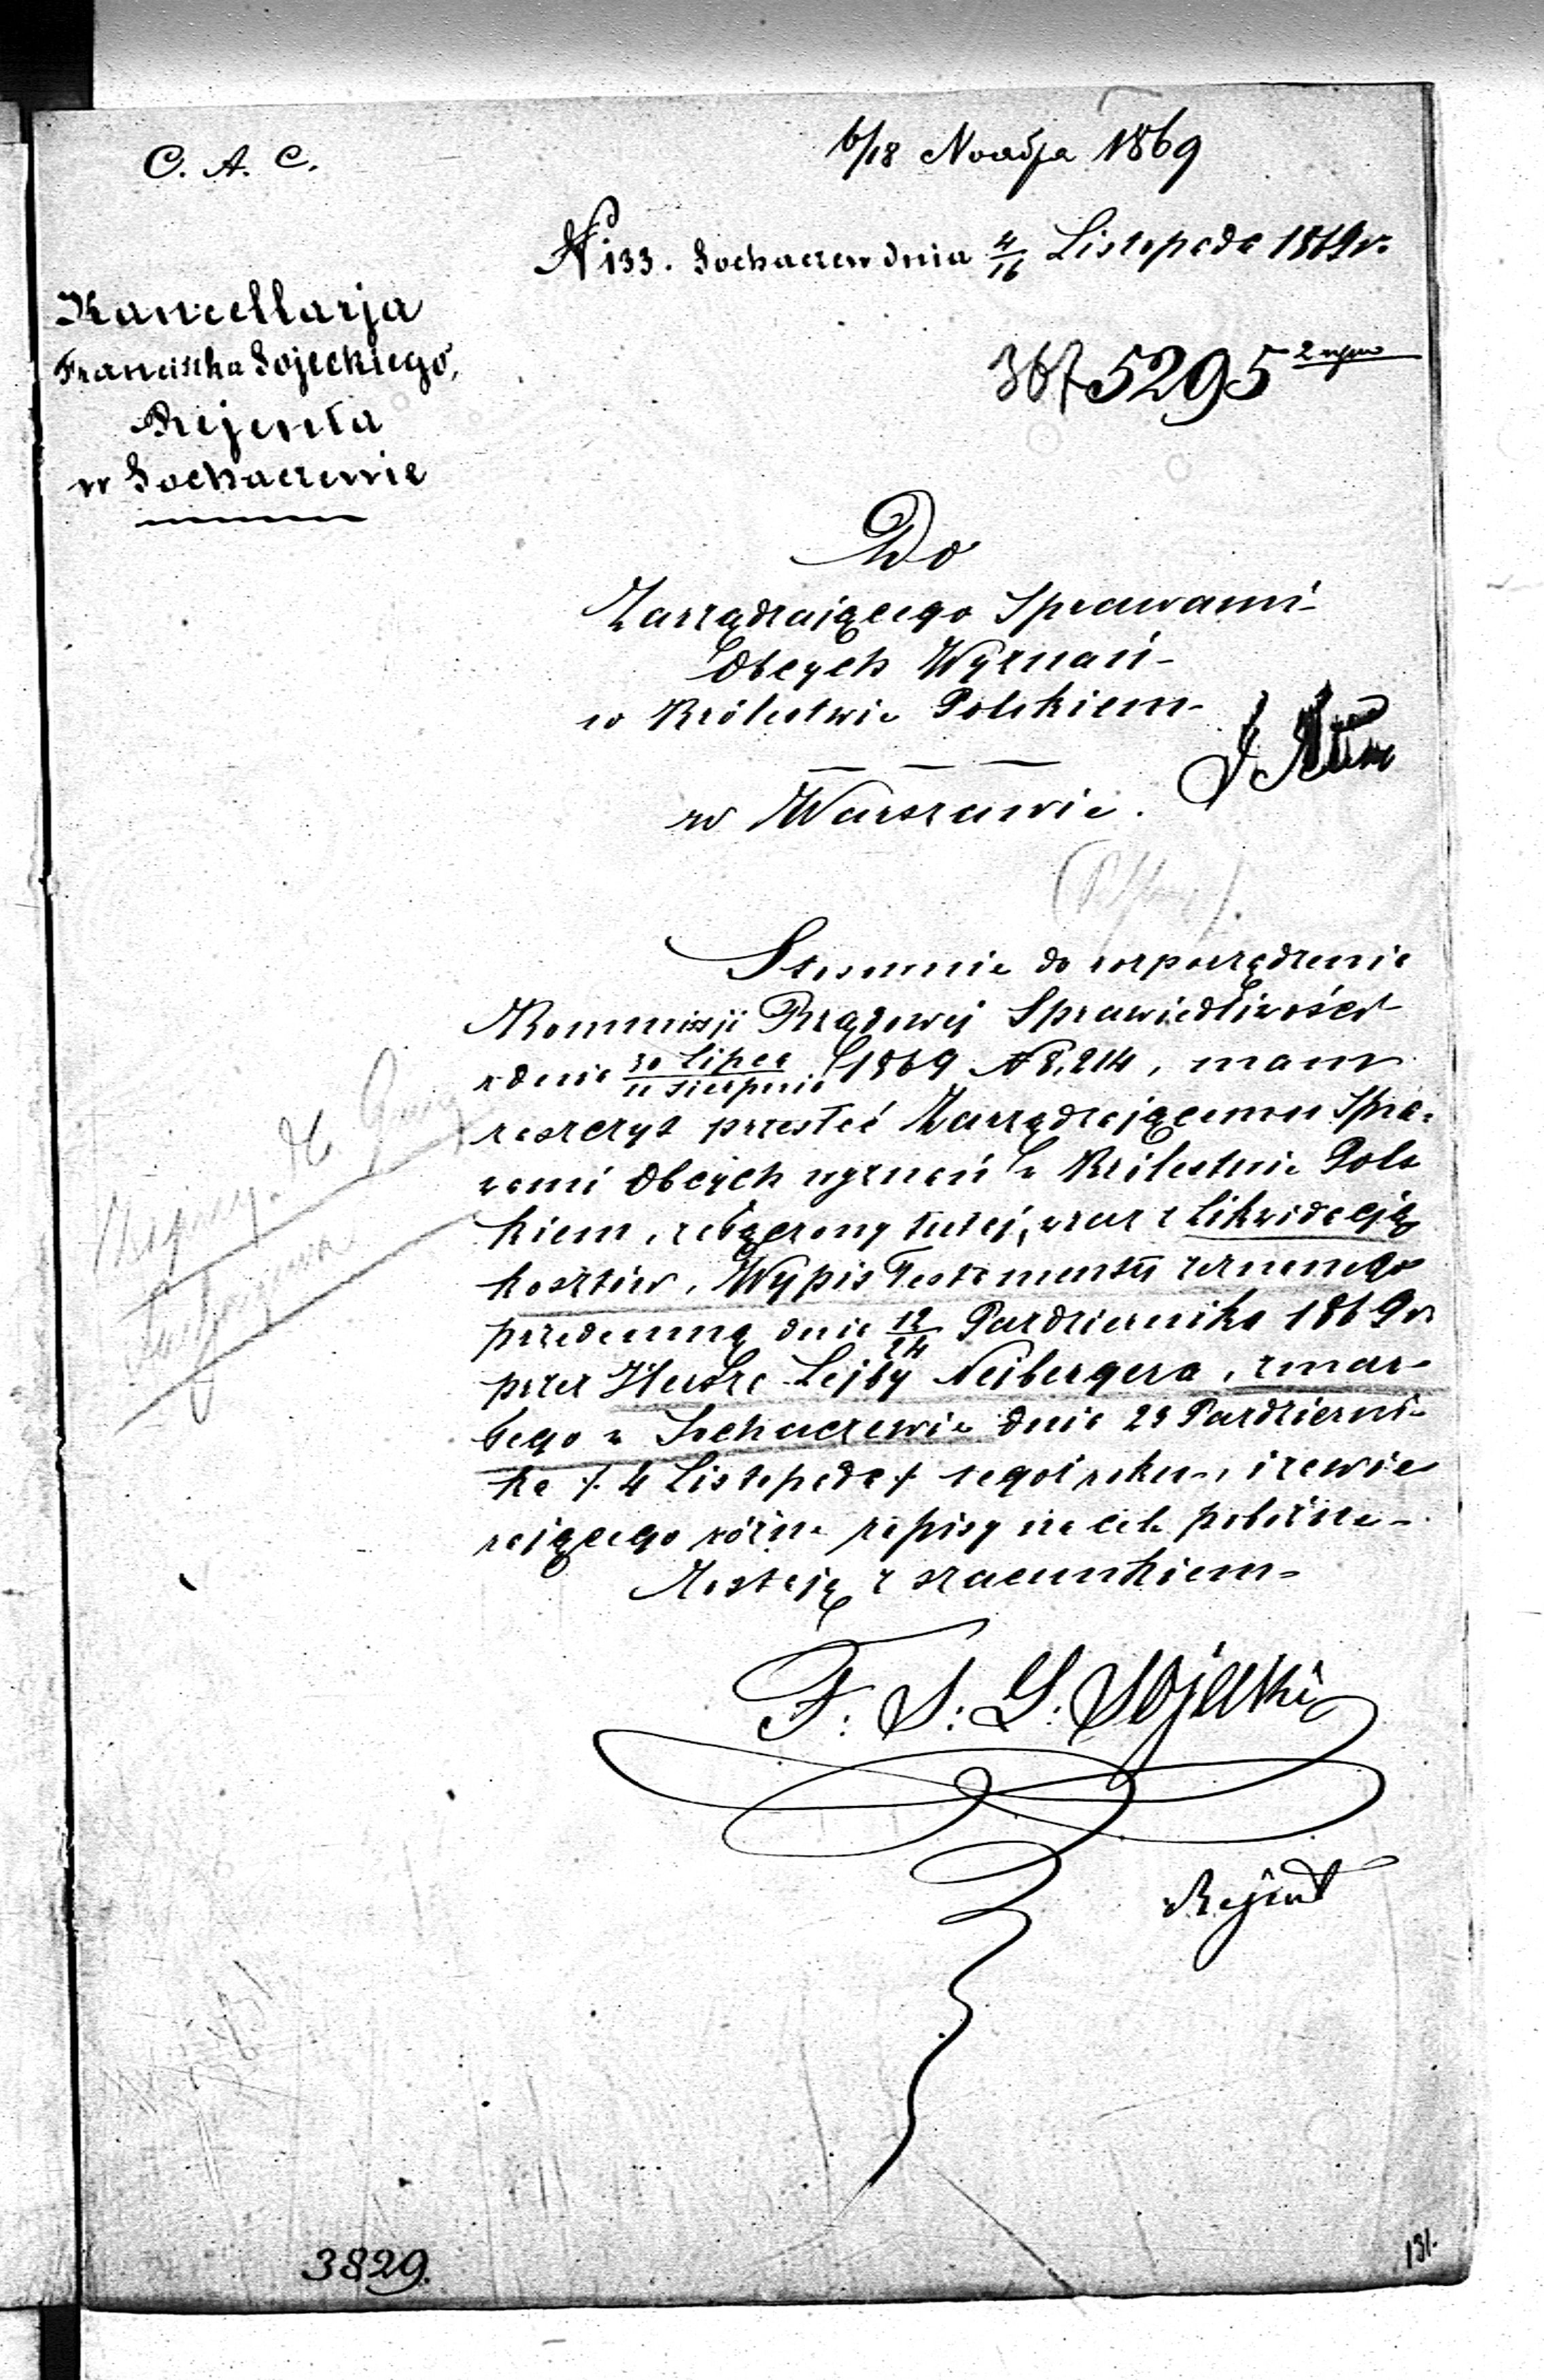 С. А. С.
6/18 Ноября 1869
N 133. Sochaczew dnia 4/16 Listopada 1869 r.
Kancellarja
Franciszka Sojeckiego,
Rejenta
w Sochaczewie
5295
Do
Zarządzającego Sprawami
Obcych Wyznań
w Królestwie Polskiem
w Warszawie.
Stosownie do rozporządzenia
Kommissji Rządowej Sprawiedliwości
z dnia 30 Lipca / 11 Sierpnia 1869 N 8,214, mam
zaszczyt przesłać Zarządzającemu Spra-
wami Obcych wyznań w Królestwie Pols
kiem, załączony tutaj, wraz z Likwidacją
kosztów, Wypis Testamentu zeznanego
przedemną dnia 12/24 Października 1869 r.
przez Herszka Lejby Nejbergera, zmar-
łego w Sochaczewie dnia 23 Październi-
ka /. 4 Listopada ./ tegoż roku, i zawie
rającego różne zapisy na cele pobożne.
Zostaję z szacunkiem
F. S. G. Sojecki
Rejent
3829.
131.